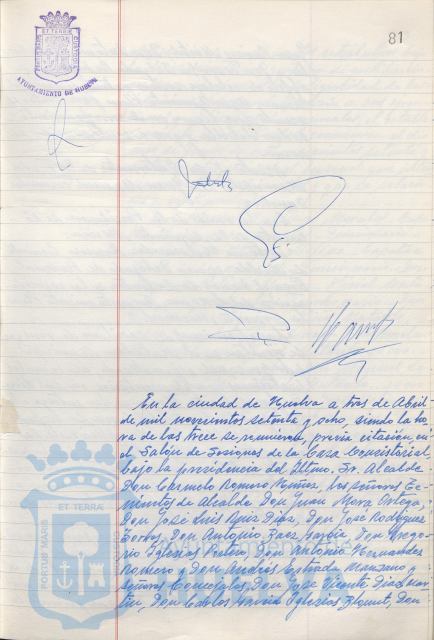 81
ET TERRÆ
PORTUS MARIS
CUSTODIA
AYUNTAMIENTO DE HUELVA
En la ciudad de Huelva a tres de Abril
de mil novecientos setenta y ocho, siendo la ho-
ra de las trece se reunieron, previa citación en
el Salón de Sesiones de la Casa Consistorial,
bajo la presidencia del Iltmo. Sr. Alcalde
Don Carmelo Romero Núñez, los señores Te-
nientes de Alcalde Don Juan Mora Ortega,
Don José Luis Ruiz Díaz, Don José Rodríguez
Don Antonio Báez Don Grego-
rio Iglesias Don Antonio Fernández
Romero y Don Andrés Estrada Manzano y
señores Concejales, Don José Vicente Díaz Mar-
tín, Don Carlos Iglesias Don
ET TERRÆ
PORTUS MARIS